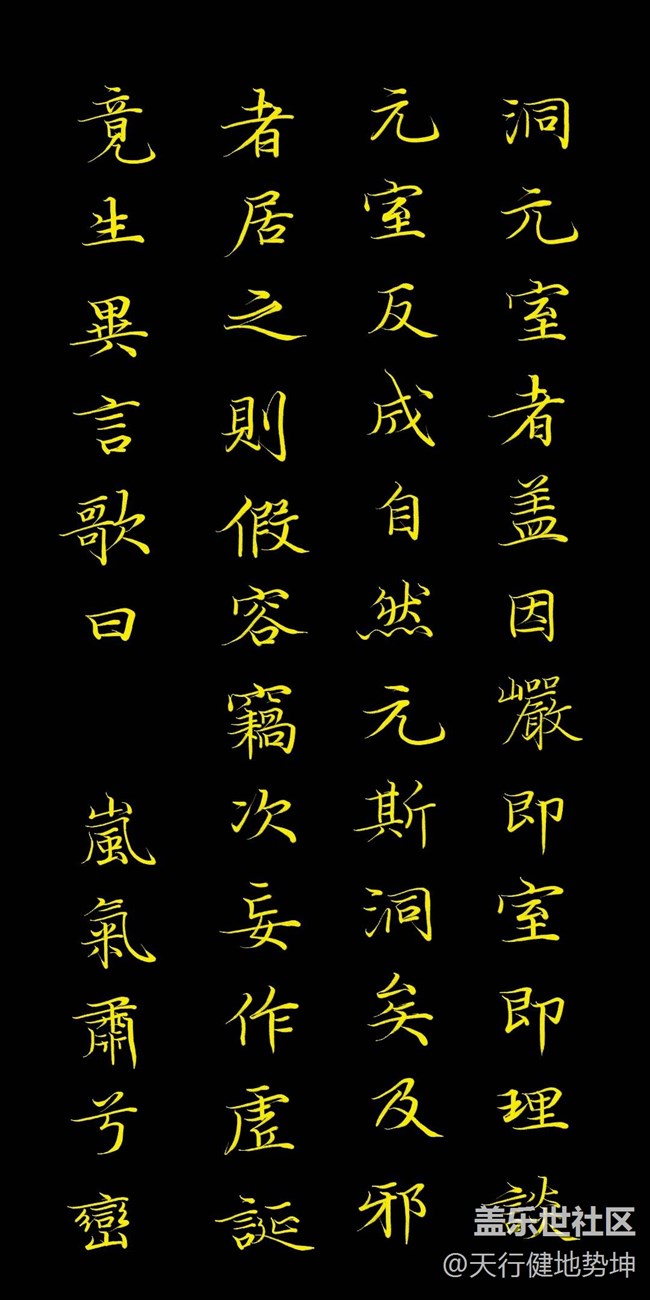 洞元室者盖因巖即室即理談
元室反成自然元斯洞矣及邪
者居之則假容竊次妄作虛誕
竟生異言歌曰 嵐氣肅兮巒
盖乐世社区
@天行健地势坤